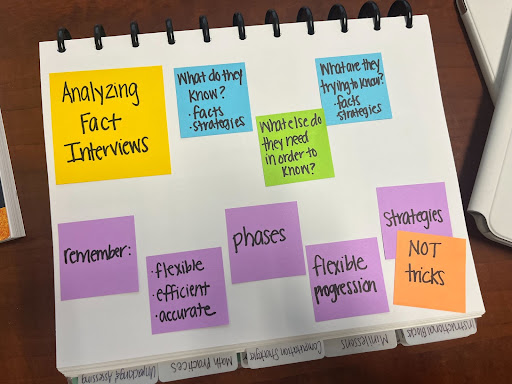 Analyzing
Fact
Interviews
What do they
know?
• facts
• strategies
What else do
they need
in order to
know?
What are they
trying to know?
• facts
strategies
remember:
• flexible
• efficient
• accurate
phases
flexible
progression
strategies
NOT
tricks
Unpacking & Assessing
Math Practices
Computation Strategies
Minilessons
Instructional Blocks